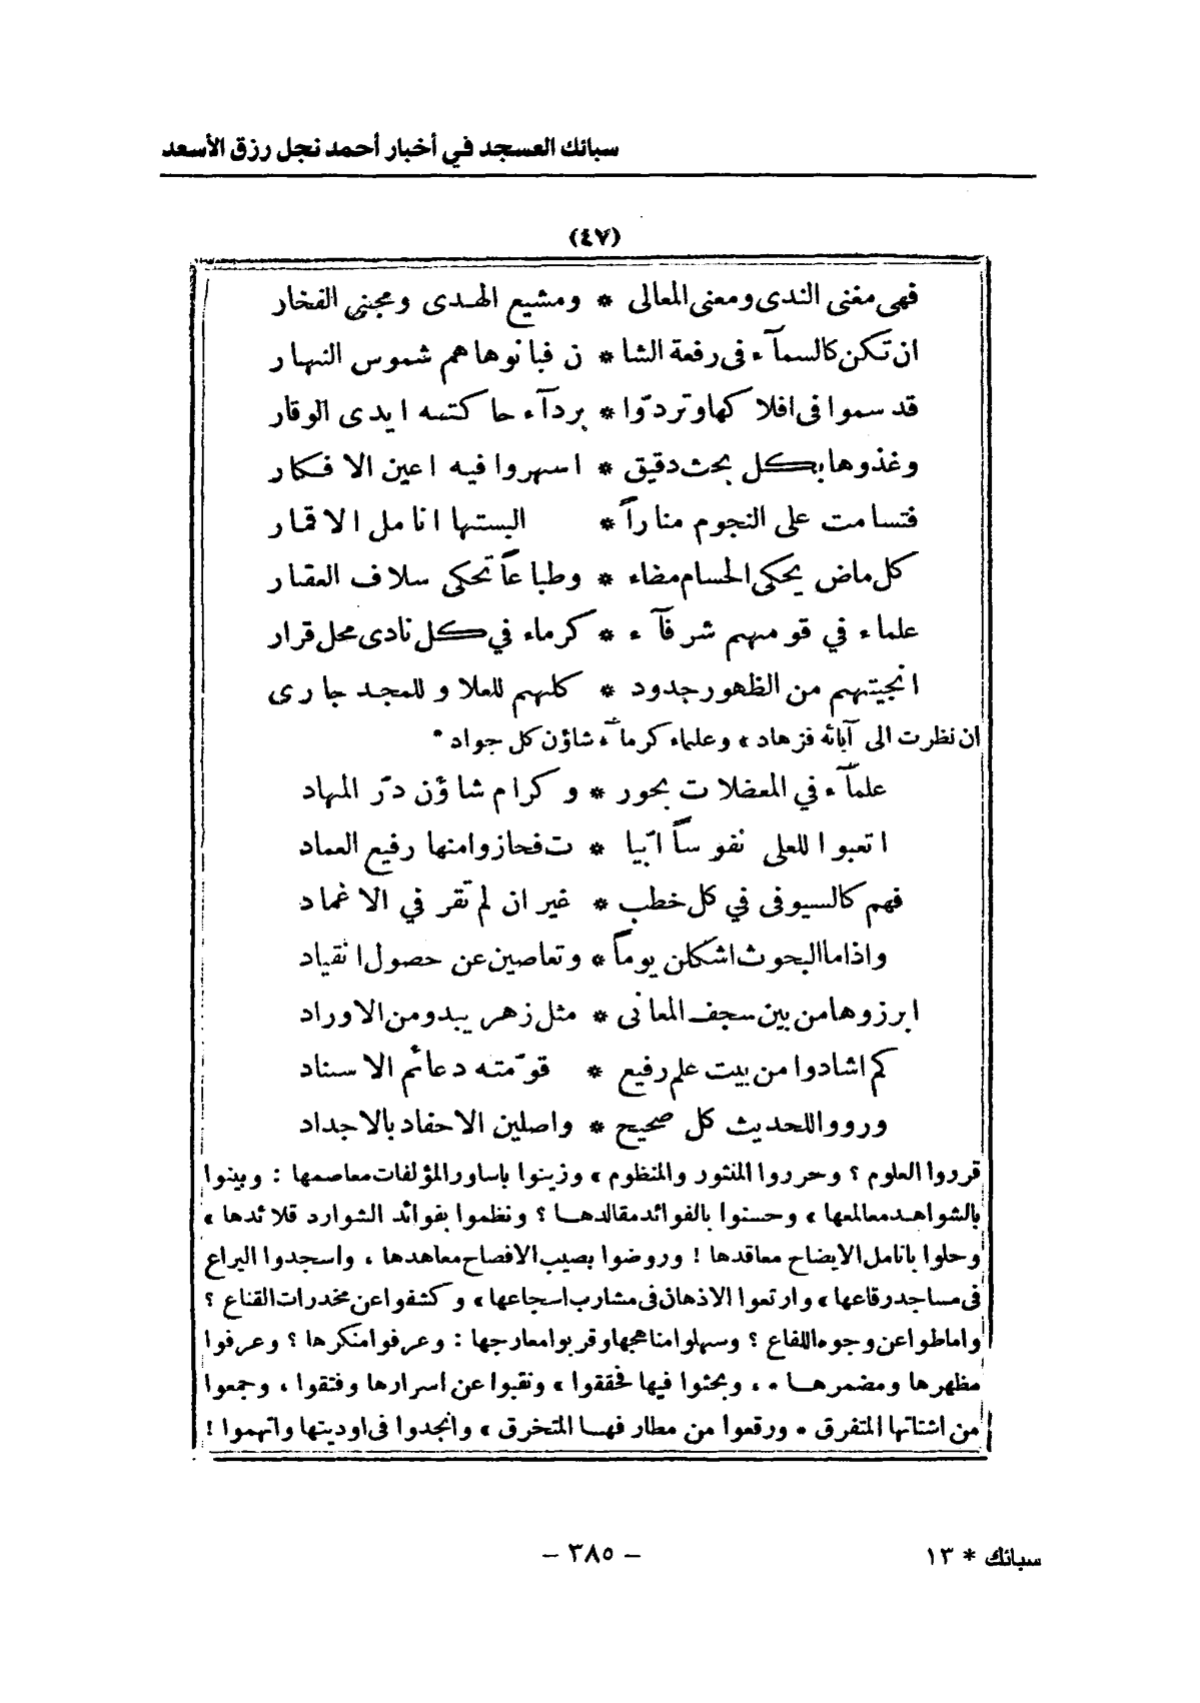 سبائك العسجد في أخبار أحمد نجل رزق الأسعد
(٤٧)
فهى مغنى الندى ومعنى المعالى * ومشيع الهدى ومجنى الفخار
ان تكن كالسمآء فى رفعة الشا * ن فبانوهاهم شموس النهار
قد سموا فى افلاكها وتردّوا * بردآء حاكته ايدى الوقار
وغذوها بكل بحث دقيق * اسهروا فيه اعين الافكار
فتسامت على النجوم مناراً * البستها انامل الاقمار
كل ماض يحكى الحسام مضاء * وطباعاً تحكى سلاف العقار
علماء في قومهم شرفآء * كرماء في كل نادى محل قرار
انجبتهم من الظهور جدود * كلهم للعلا وللمجد جارى
ان نظرت الى آبائه فزهاد » وعلماء كرمآء شاؤن كل جواد *
علمآء في المعضلات بحور * وكرام شاؤن درّ المهاد
اتعبوا للعلى نفوساً ابّيا * ت فحازوا منها رفيع العماد
فهم كالسيوفى في كل خطب * غير ان لم تقر في الاغماد
واذا ما البحوث اشكلن يوماً * وتعاصين عن حصول انقياد
ابرزوها من بين سجف المعانى * مثل زهر يبدو من الاوراد
كم اشادوا من بيت علم رفيع * قوّمته دعائم الاسناد
ورووا للحديث كل صحيح * واصلين الاحفاد بالاجداد
قرروا العلوم ؟ وحرروا المنثور والمنظوم » وزينوا باساور المؤلفات معاصمها : وبينوا
بالشواهد معالمها » وحسنوا بالفوائد مقالدها ؟ ونظموا بفوائد الشوارد قلائدها »
وحلوا بانامل الايضاح معاقدها ! وروضوا بصيب الافصاح معاهدها ، واسجدوا اليراع
فى مساجد رقاعها » وارتعوا الاذهان فى مشارب اسجاعها » وكشفوا عن مخدرات القناع ؟
واماطوا عن وجوه اللفاع ؟ وسهلوا مناهجها وقربوا معارجها : وعرفوا منكرها ؟ وعرفوا
مظهرها ومضمرها ٠ ، وبحثوا فيها فحققوا » ونقبوا عن اسرارها وفتقوا ، وجمعوا
من اشتاتها المتفرق * ورقعوا من مطارفها المتخرق » وانجدوا فى اوديتها واتهموا !
سبائك * ١٣
– ٣٨٥ –